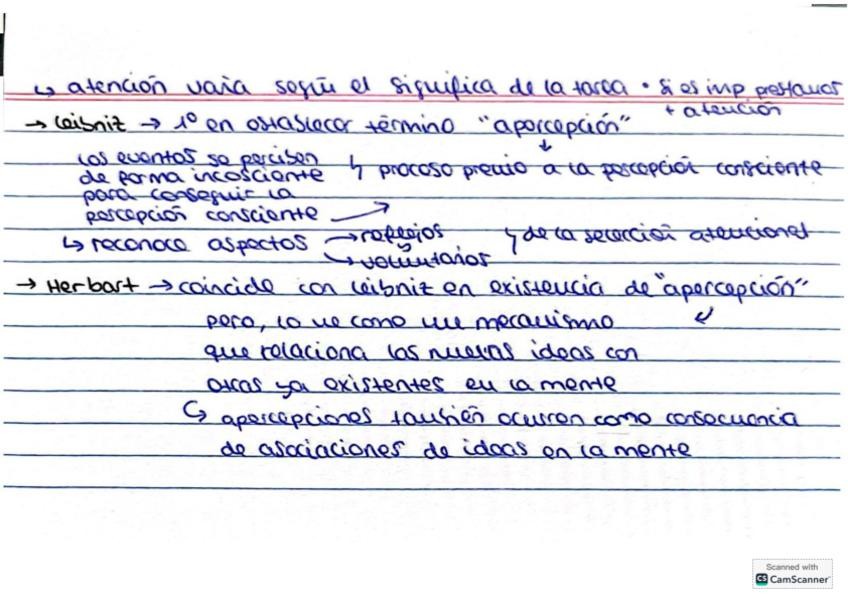 ↳ atención varía según el significa de la tarea • si es imp prestamos
+ atención
→ Leibniz → 1º en establecer término "apercepción"
↓
los eventos se perciben
de forma incosciente ↳ proceso previo a la percepción consciente
para conseguir la
percepción consciente →
↳ reconoce aspectos → reflejos y de la selección atencional
→ voluntarios
→ Herbart → coincide con Leibniz en existencia de "apercepción"
pero, lo ve como un mecanismo ↙
que relaciona las nuevas ideas con
otras ya existentes en la mente
↳ apercepciones también ocurren como consecuencia
de asociaciones de ideas en la mente
Scanned with
CS CamScanner